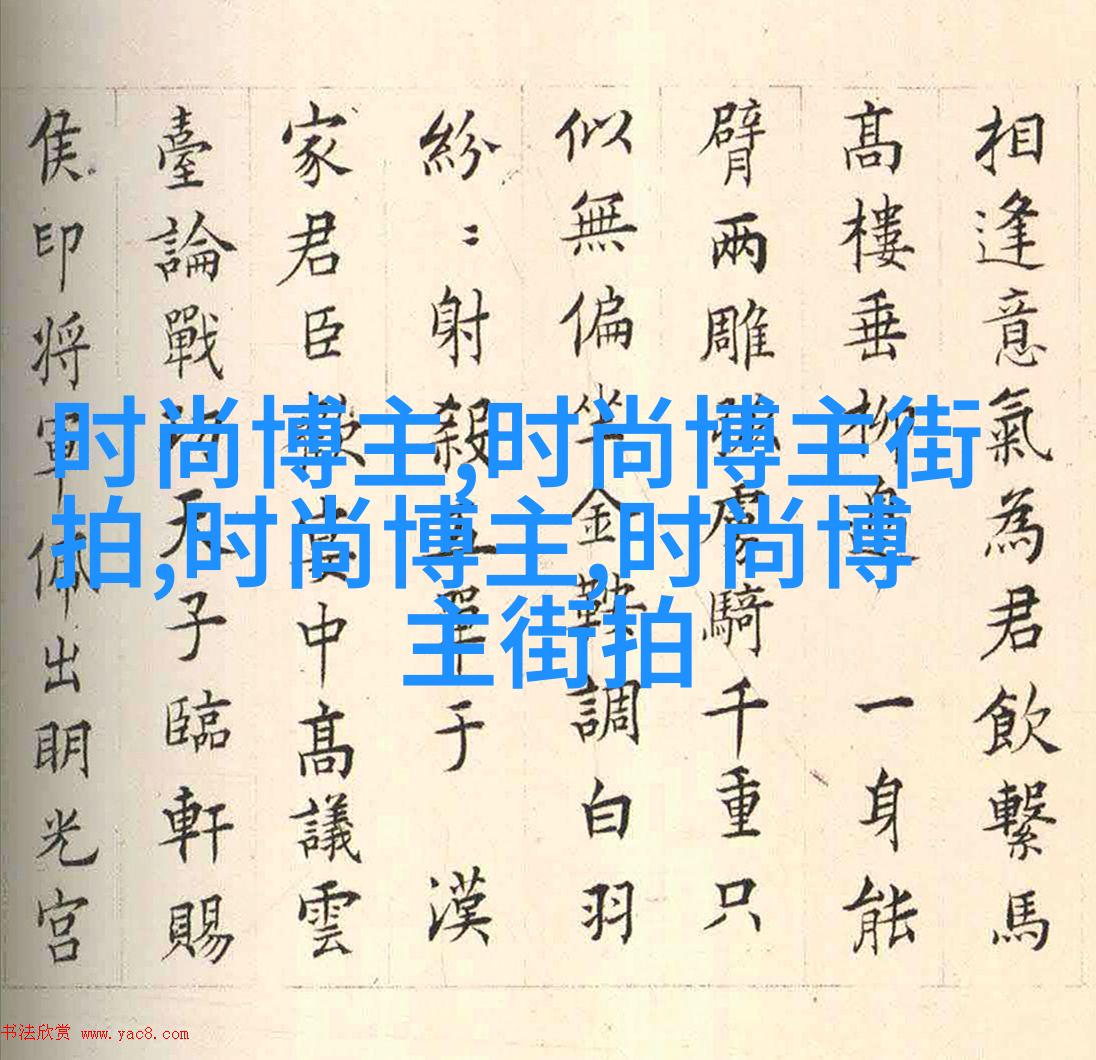 相逢意氣為君飲繫馬
高樓垂柳邊 一身能
臂兩雕弧虜騎千重只
似無偏坐金鞍調白羽
紛〻射殺五單于 漢
家君臣歡宴中高議雲
臺論戰功天子臨軒賜
侯印将軍佩出明光宮
时尚博主,时尚博主街
拍,时尚博主,时尚博
主街拍
书法欣赏 www.yac8.com